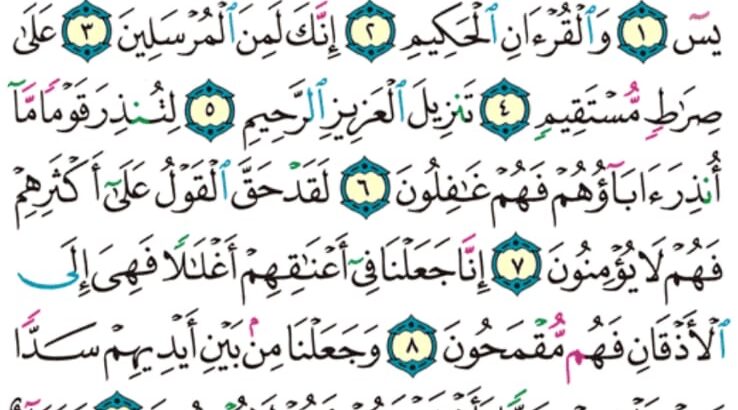 يسٓ ١ وَٱلْقُرْءَانِ ٱلْحَكِيمِ ٢ إِنَّكَ لَمِنَ ٱلْمُرْسَلِينَ ٣ عَلَىٰ
صِرَٰطٍ مُّسْتَقِيمٍ ٤ تَنزِيلَ ٱلْعَزِيزِ ٱلرَّحِيمِ ٥ لِتُنذِرَ قَوْمًا مَّآ
أُنذِرَ ءَابَآؤُهُمْ فَهُمْ غَٰفِلُونَ ٦ لَقَدْ حَقَّ ٱلْقَوْلُ عَلَىٰٓ أَكْثَرِهِمْ
فَهُمْ لَا يُؤْمِنُونَ ٧ إِنَّا جَعَلْنَا فِىٓ أَعْنَٰقِهِمْ أَغْلَٰلًا فَهِىَ إِلَى
ٱلْأَذْقَانِ فَهُم مُّقْمَحُونَ ٨ وَجَعَلْنَا مِنۢ بَيْنِ أَيْدِيهِمْ سَدًّا